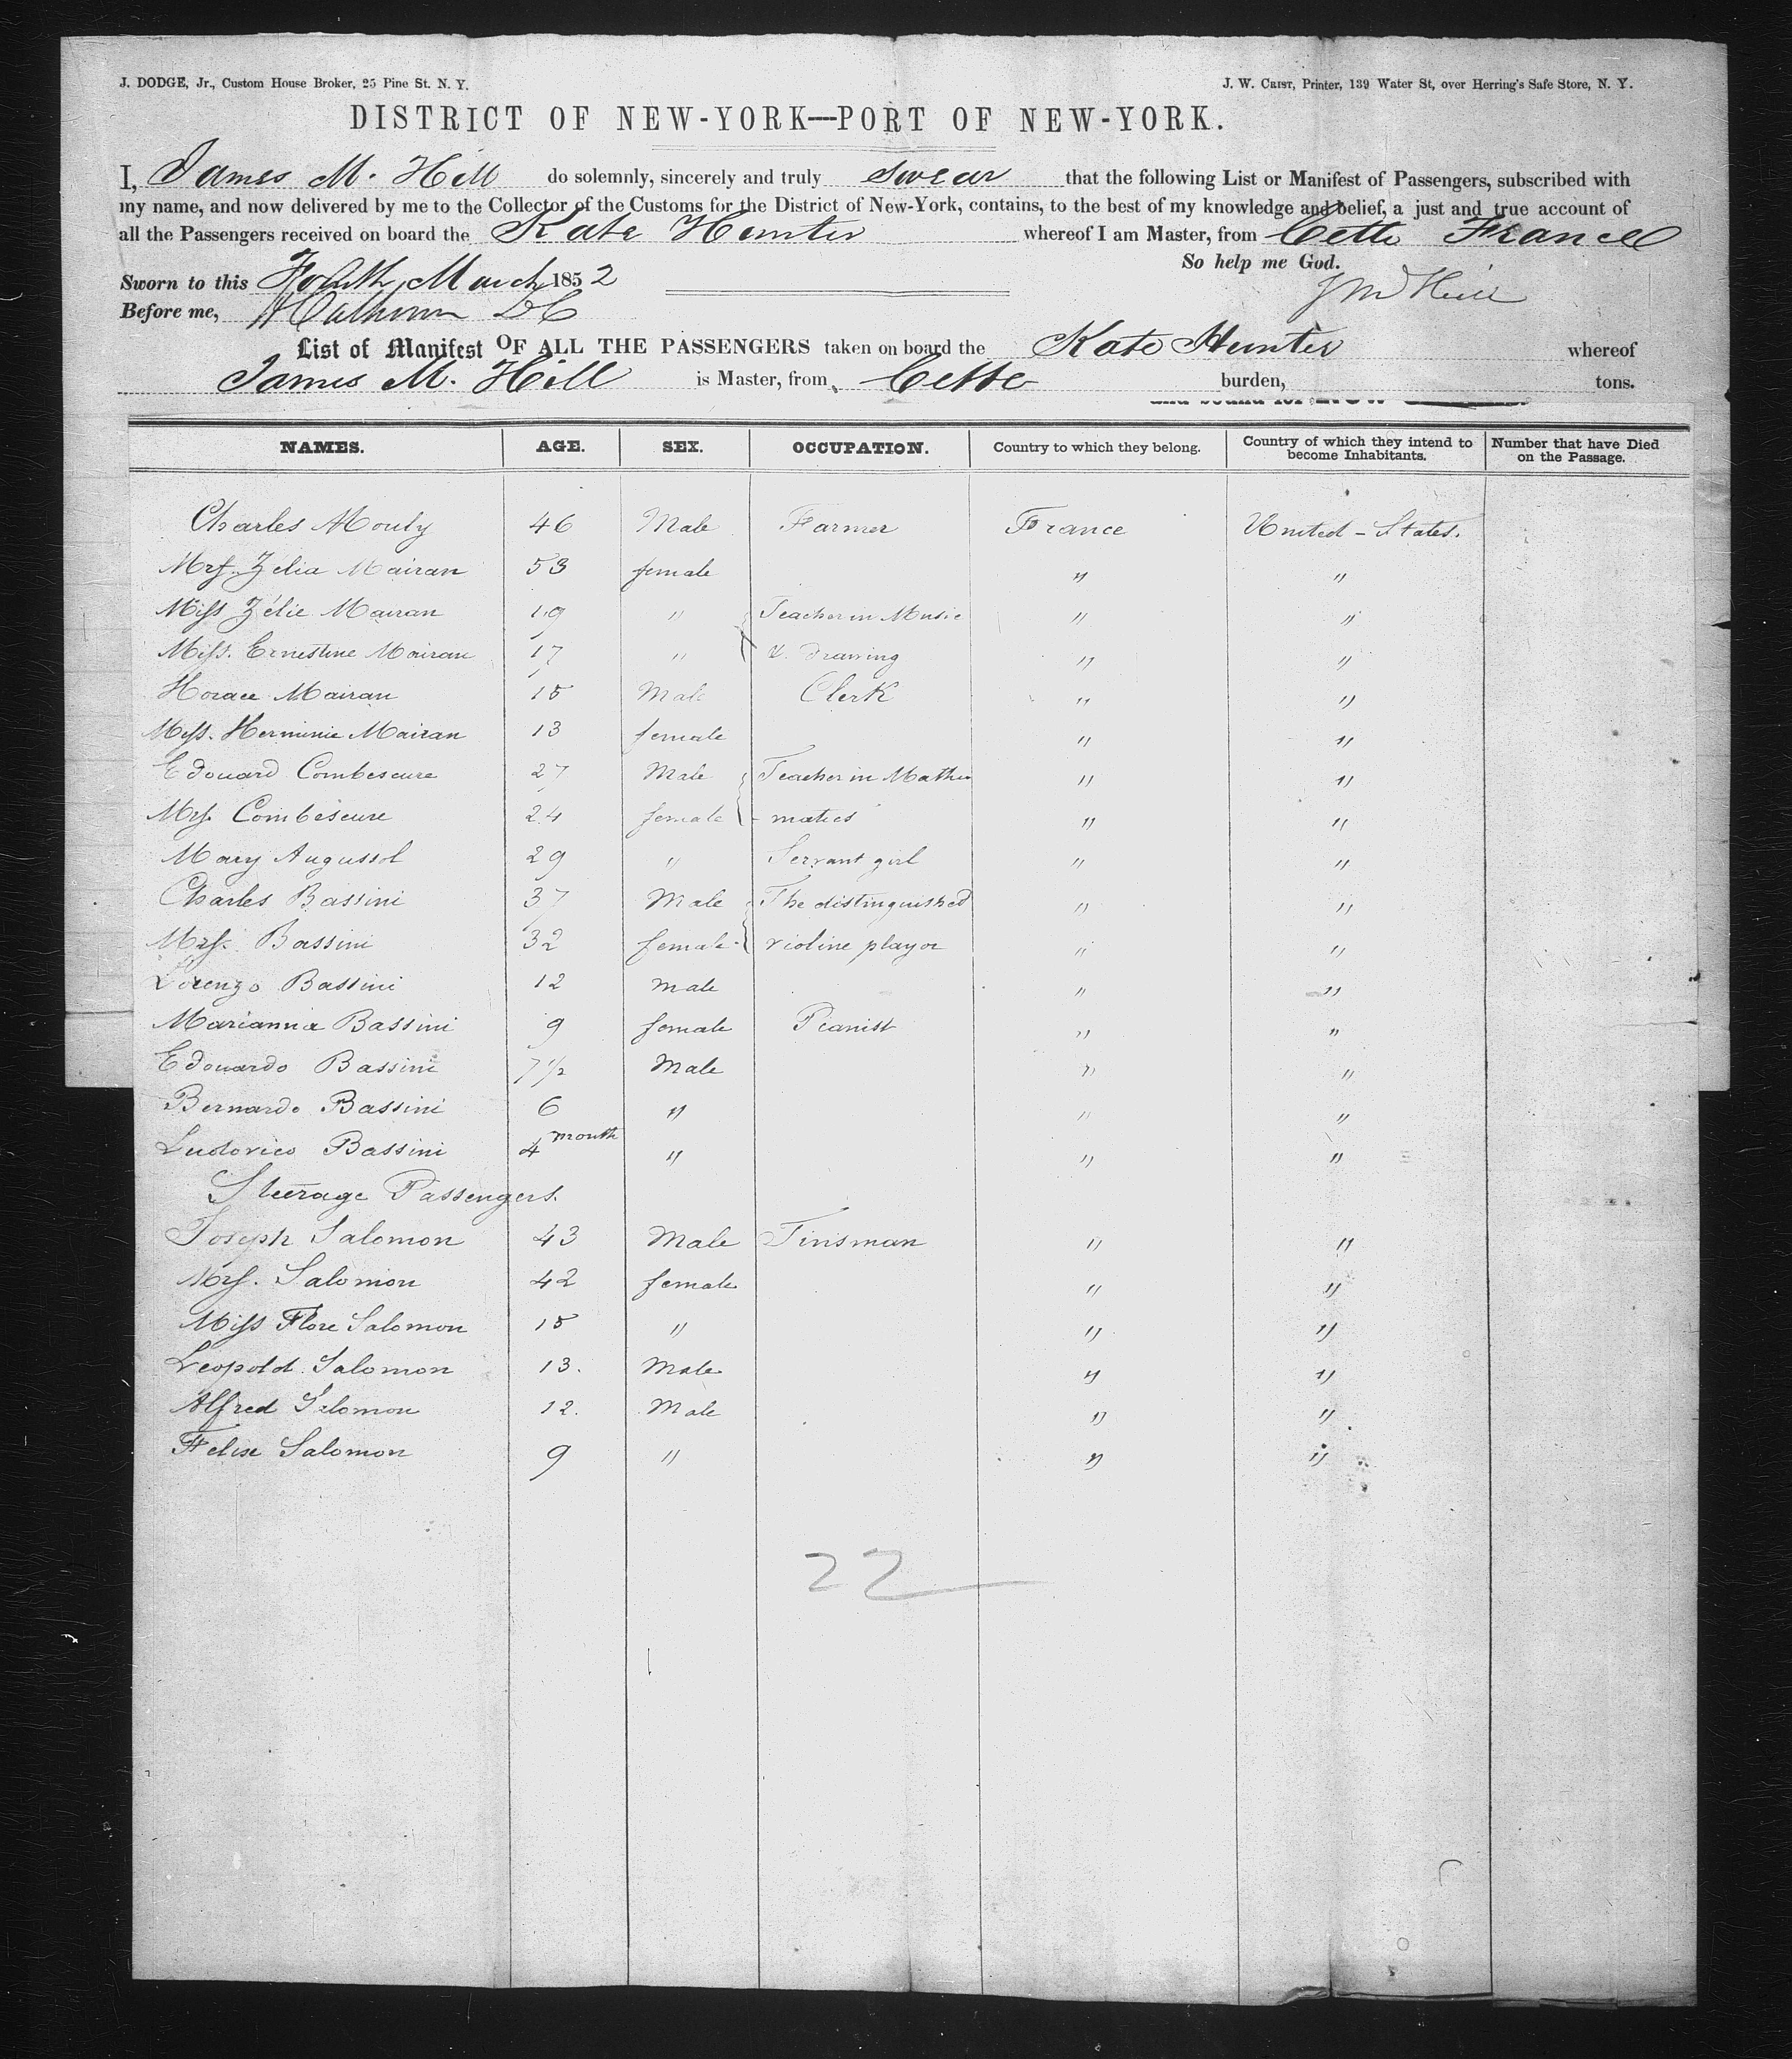 J. DODGE, Jr., Custom House Broker, 25 Pine St. N. Y. J. W. CRIST, Printer, 139 Water St, over Herring's Safe Store, N. Y.
DISTRICT OF NEW-YORK—PORT OF NEW-YORK.
I, James M. Hill do solemnly, sincerely and truly swear that the following List or Manifest of Passengers, subscribed with
my name, and now delivered by me to the Collector of the Customs for the District of New-York, contains, to the best of my knowledge and belief, a just and true account of
all the Passengers received on board the Kate Hunter whereof I am Master, from Cette France
So help me God.
Sworn to this Fourth March 1852 J M Hill
Before me, Calhoun DC
List of Manifest OF ALL THE PASSENGERS taken on board the Kate Hunter whereof
James M. Hill is Master, from Cette burden, tons.
NAMES. AGE. SEX. OCCUPATION. Country to which they belong. Country of which they intend to become Inhabitants. Number that have Died on the Passage.
Charles Mouly 46 Male Farmer France United-States.
Mrs. Zélia Mairan 53 female " "
Miss Zélie Mairan 19 " Teacher in Music " "
Miss. Ernestine Mairan 17 " & Drawing " "
Horace Mairan 15 Male Clerk " "
Miss. Herminie Mairan 13 female " "
Edouard Combescure 27 Male Teacher in Mathe " "
Mrs. Combescure 24 female - matics " "
Mary Augussol 29 " Servant girl " "
Charles Bassini 37 Male The distinguished " "
Mrs. Bassini 32 female violine player " "
Lorenzo Bassini 12 male " "
Marianna Bassini 9 female Pianist " "
Edouardo Bassini 7 1/2 Male " "
Bernardo Bassini 6 " " "
Ludovico Bassini 4 month " " "
Steerage Passengers.
Joseph Salomon 43 Male Tinsman " "
Mrs. Salomon 42 female " "
Miss Flore Salomon 15 " " "
Leopold Salomon 13. Male " "
Alfred Salomon 12. Male " "
Felix Salomon 9 " " "
22